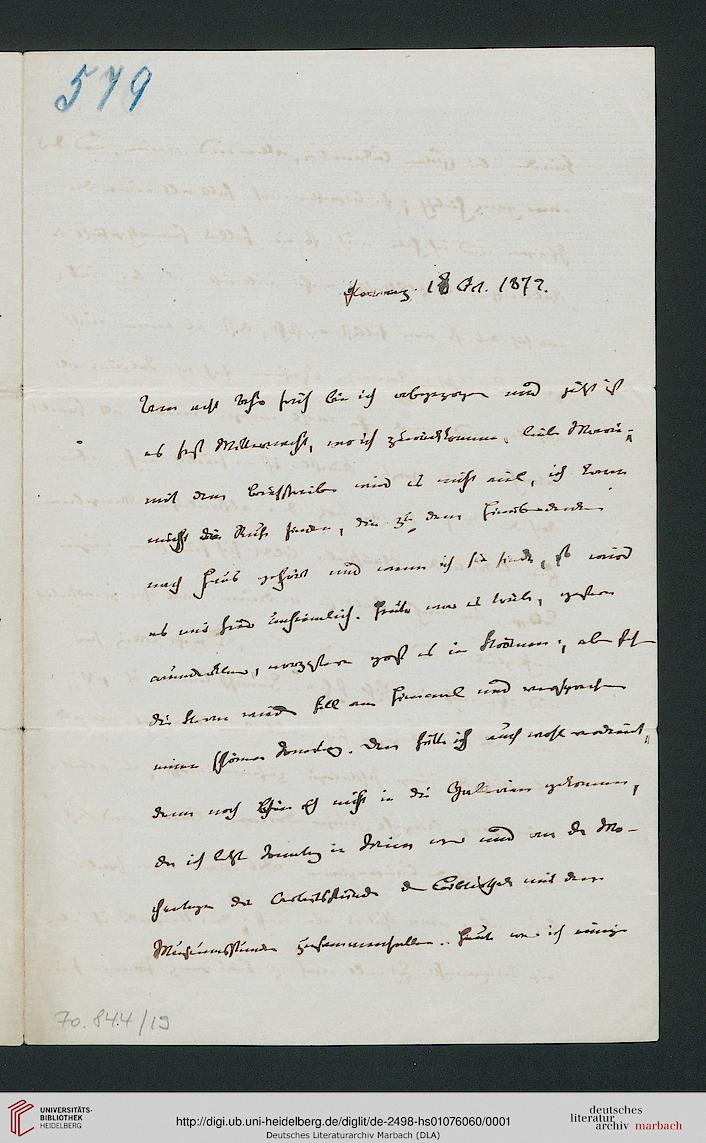 579
Florenz. 18 Oct. 1872.
Um acht Uhr früh bin ich ausgegangen und jetzt ist
es fast Mitternacht, wo ich zurückkomme, liebe Marie,
mit dem Briefschreiben wird es nicht viel, ich kann
nicht die Ruhe finden, die zu dem
nach Haus gehört und wenn ich sie finde, so wird
es mir hier unheimlich. Heute war es trüb, gestern
wundervoll, vorgestern goß es in Strömen, aber
die Sterne wieder hell am Himmel und versprachen
einen schönen Sonntag. Den hätte ich auch wohl verdient,
denn noch bin ich nicht in die Galerien gekommen,
da ich letzt Sonntag in war und an den Wo-
chentagen die Arbeitsstunden der Bibliothek mit den
Museumsstunden zusammenfallen. Heute war ich einige
70.844/19
UNIVERSITÄTS-
BIBLIOTHEK
HEIDELBERG
http://digi.ub.uni-heidelberg.de/diglit/de-2498-hs01076060/0001
Deutsches Literaturarchiv Marbach (DLA)
deutsches
literatur
archiv marbach